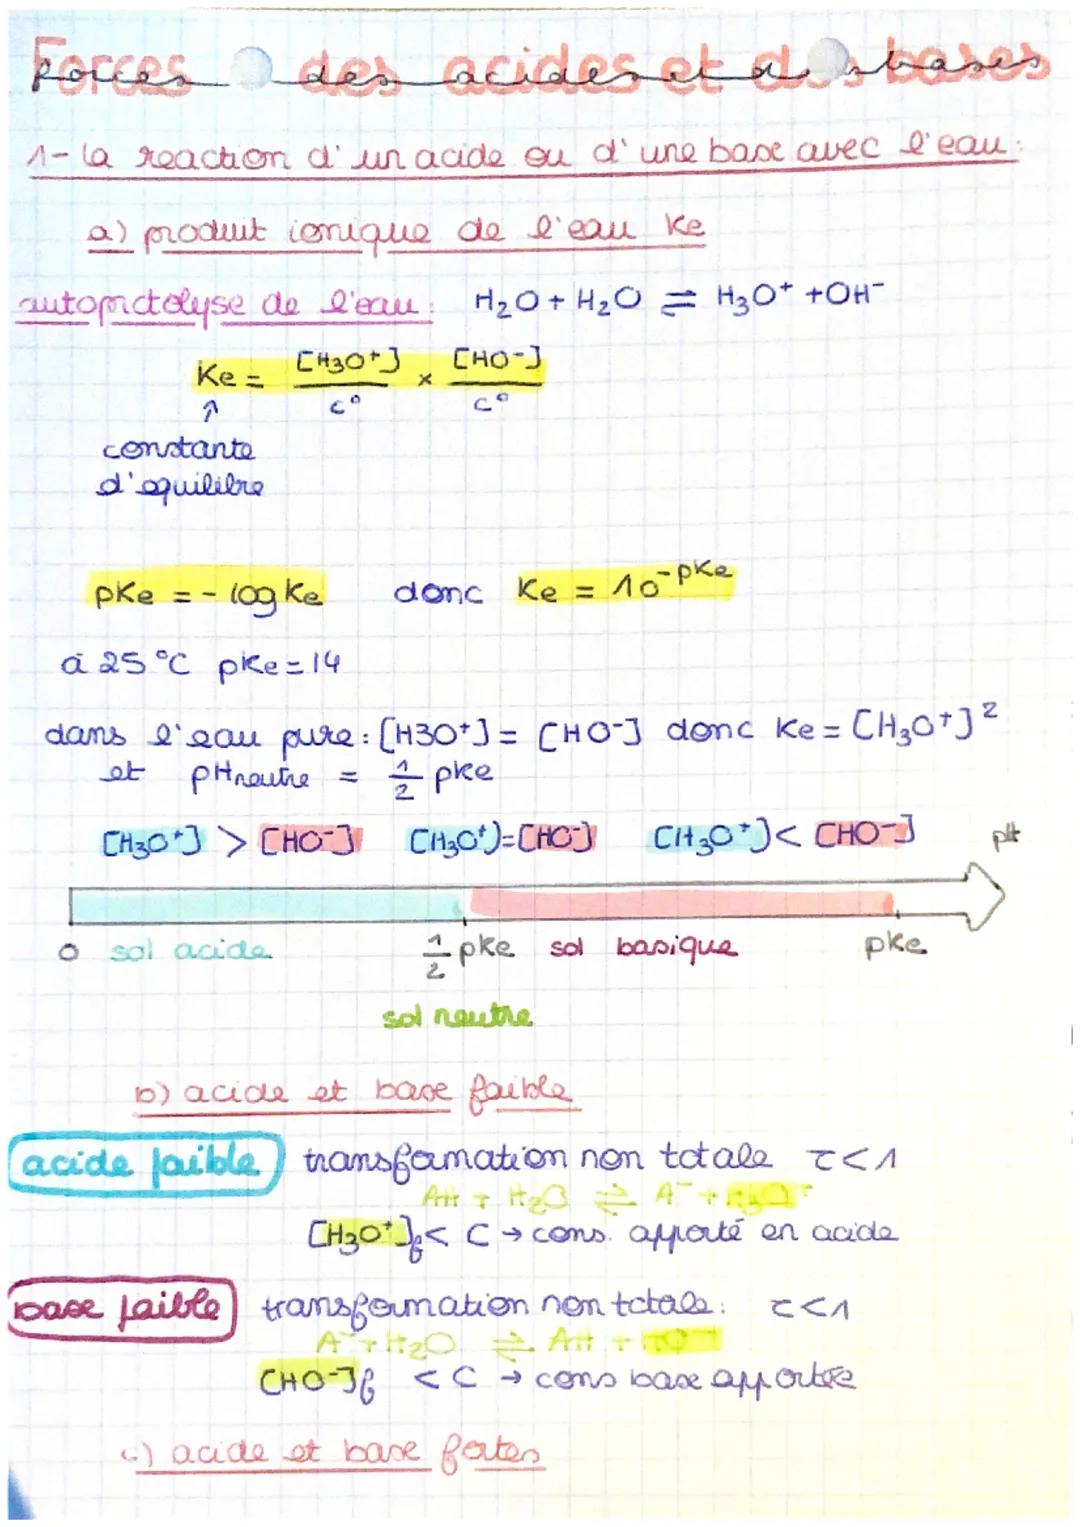 Forces des acides et des bases
1- la reaction d'un acide ou d'une base avec l'eau :
a) produit ionique de l'eau Ke
autoprotolyse de l'eau : H₂O + H₂O ⇌ H₃O⁺ + OH⁻
Ke = [H3O⁺]/c° × [HO⁻]/c°
↑
constante
d'equilibre
pKe = - log Ke donc Ke = 10^-pKe
à 25 °C pKe = 14
dans l'eau pure : [H3O⁺] = [HO⁻] donc Ke = [H₃O⁺]²
et pHneutre = 1/2 pKe
[H₃O⁺] > [HO⁻] [H₃O⁺] = [HO⁻] [H₃O⁺] < [HO⁻] pH
0 sol acide 1/2 pKe sol basique pKe
sol neutre
b) acide et base faible
acide faible transformation non totale τ<1
AH + H₂O ⇌ A⁻ + H₃O⁺
[H₃O⁺]f < C → cons. apporté en acide
base faible transformation non totale : τ<1
A⁻ + H₂O ⇌ AH + HO⁻
[HO⁻]f < C → cons base apportée
c) acide et base fortes